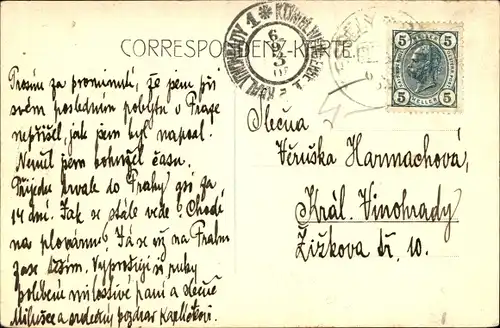 CORRESPONDENZ-KARTE
KÖNIGL. WEINBERGE 1. * KRÁL. VINOHRADY 1
5 5
5 HELLER 5
Prosím za prominutí, že jsem při
svém posledním pobytu v Praze
nepřišel, jak jsem byl napsal.
Neměl jsem bohužel času.
Přijedu trvale do Prahy asi za
14 dní. Jak se stále vede? Chodí
na plovárnu? Já se už na Prahu
zase těším. Vyprošuji si ruky
políbení milostivé paní a slečně
Milušce a srdečný pozdrav
Slečna
Věruška Harmachová,
Král. Vinohrady
Žižkova tř. 10.